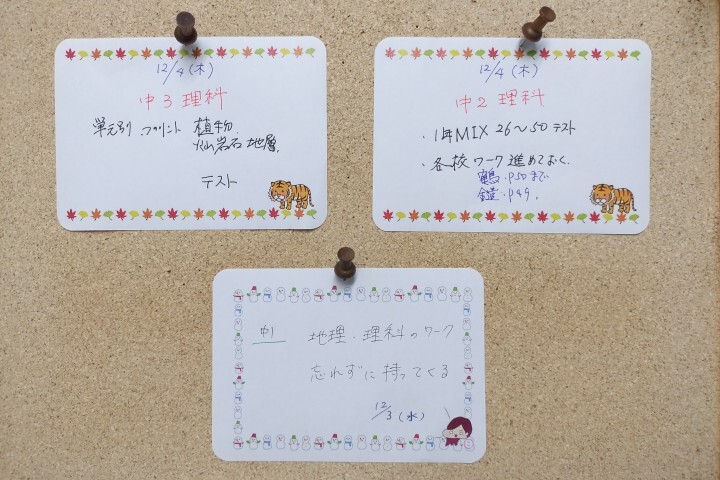 12/4(木)
中3 理科
単元別 プリント 植物
火山岩石 地層
テスト
12/4(木)
中2 理科
・1年MIX 26〜50 テスト
・各校ワーク進めておく.
鶴.P50まで
P49.
中1 地理・理科のワーク
忘れずに持ってくる
12/3(水)